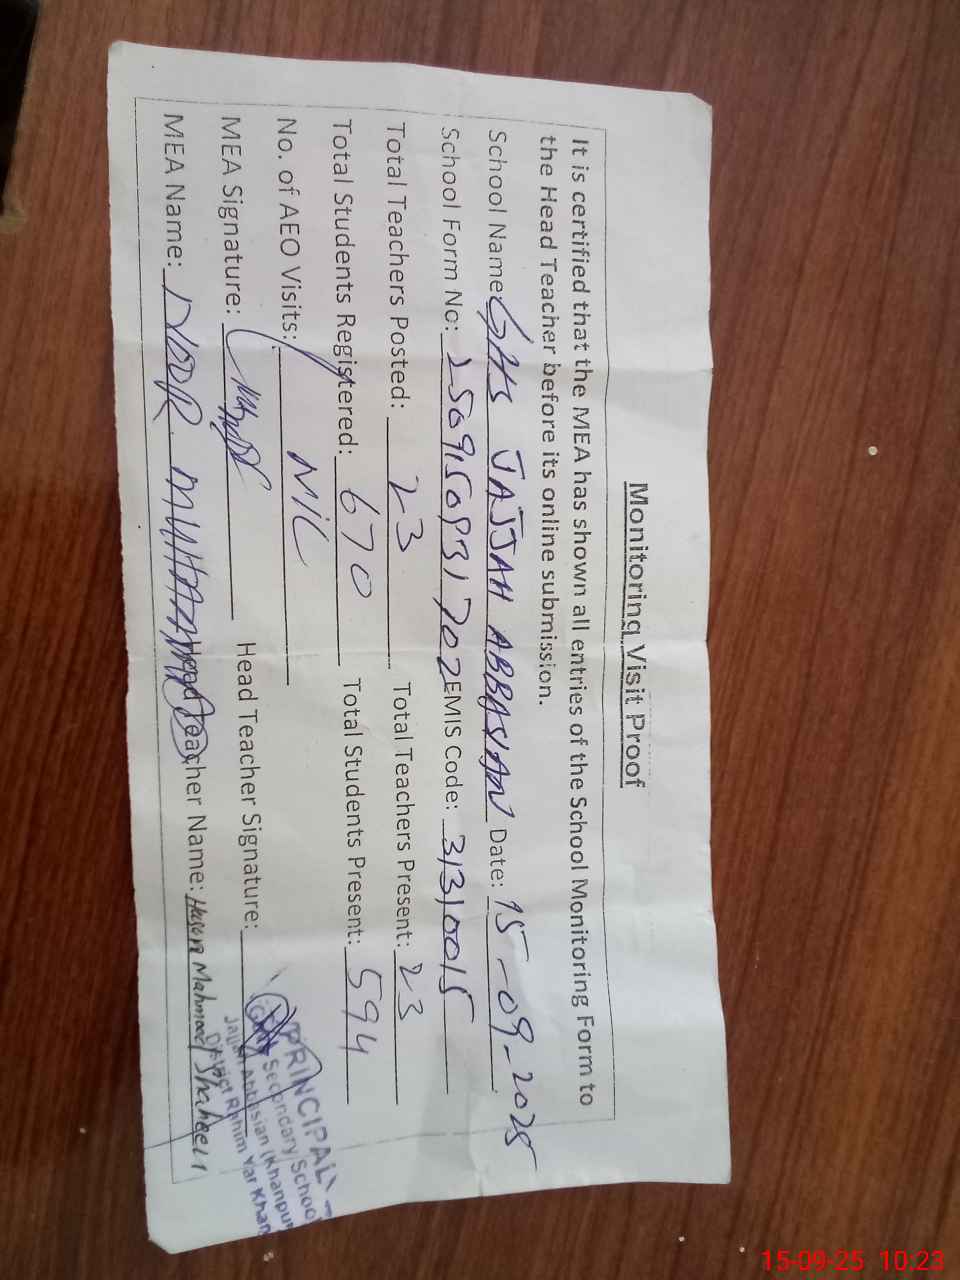 Monitoring Visit Proof
It is certified that the MEA has shown all entries of the School Monitoring Form to
the Head Teacher before its online submission.
School Name GHS JAJJAH ABBASIAN Date: 15-09-2025
School Form No: 2509150931702 EMIS Code: 31310015
Total Teachers Posted: 23 Total Teachers Present: 23
Total Students Registered: 670 Total Students Present: 594
No. of AEO Visits: NIL
MEA Signature: Head Teacher Signature:
MEA Name: NOOR MUHAMMAD Head Teacher Name: Hasan Mahmood Shaheen
PRINCIPAL
Govt. Secondary School
Jajjah Abbasian (Khanpur)
District Rahim Yar Khan
15-09-25 10:23